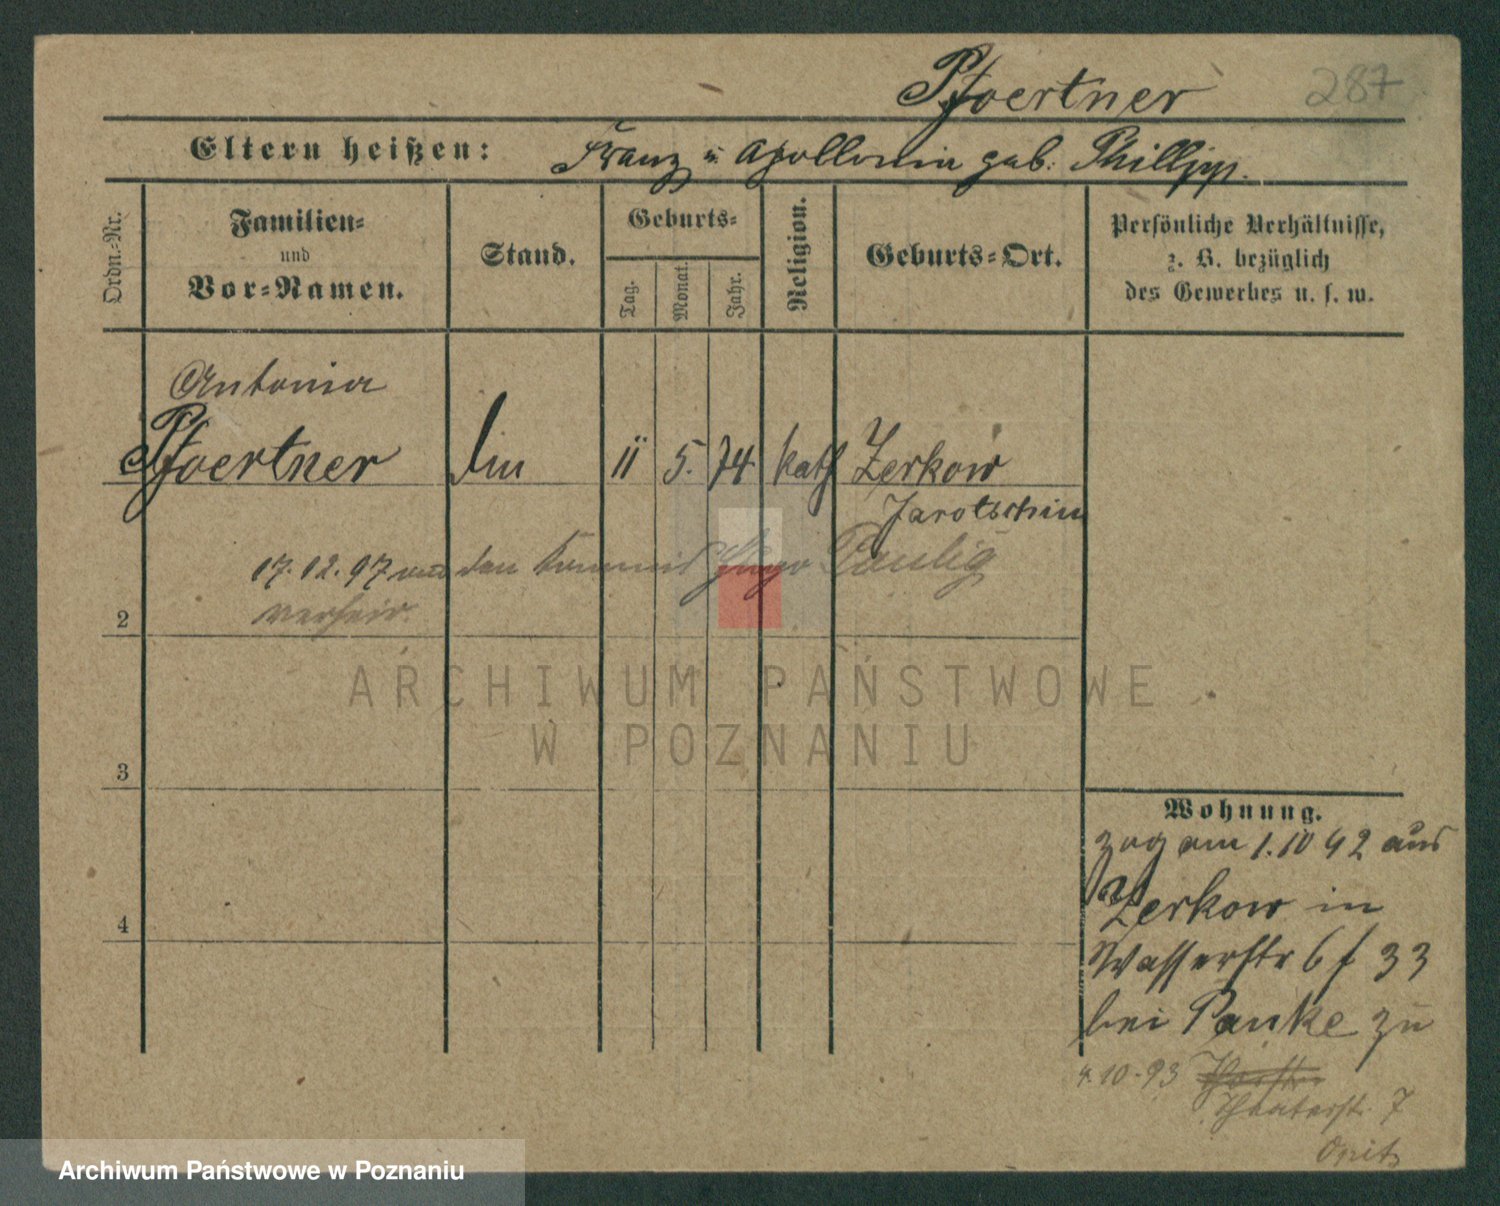 Pfoertner 287
Eltern heißen: Franz u. Apollonia geb. Phillipp.
Ordn.-Nr.
Familien-
und
Vor-Namen.
Stand.
Geburts-
Tag.
Monat.
Jahr.
Religion.
Geburts-Ort.
Persönliche Verhältnisse,
z. B. bezüglich
des Gewerbes u. s. w.
Antonia
Pfoertner 11 5. 74 kath Zerkow
Jarotschin
17.12.97 den Commis Hugo Paulig
verheir.
2
ARCHIWUM PAŃSTWOWE
W POZNANIU
3
4
Wohnung.
zog am 1.10 92 aus
Zerkow in
Wasserstr 6 f 33
bei Panke zu
4.10.93
Theaterstr. 7
Opitz
Archiwum Państwowe w Poznaniu